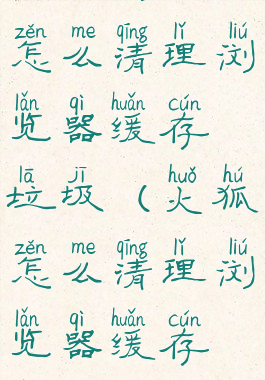 zěn me qīng lǐ liú
怎么清理浏
lǎn qì huǎn cún
览器缓存
lā jī huǒ hú
垃圾（火狐
zěn me qīng lǐ liú
怎么清理浏
lǎn qì huǎn cún
览器缓存